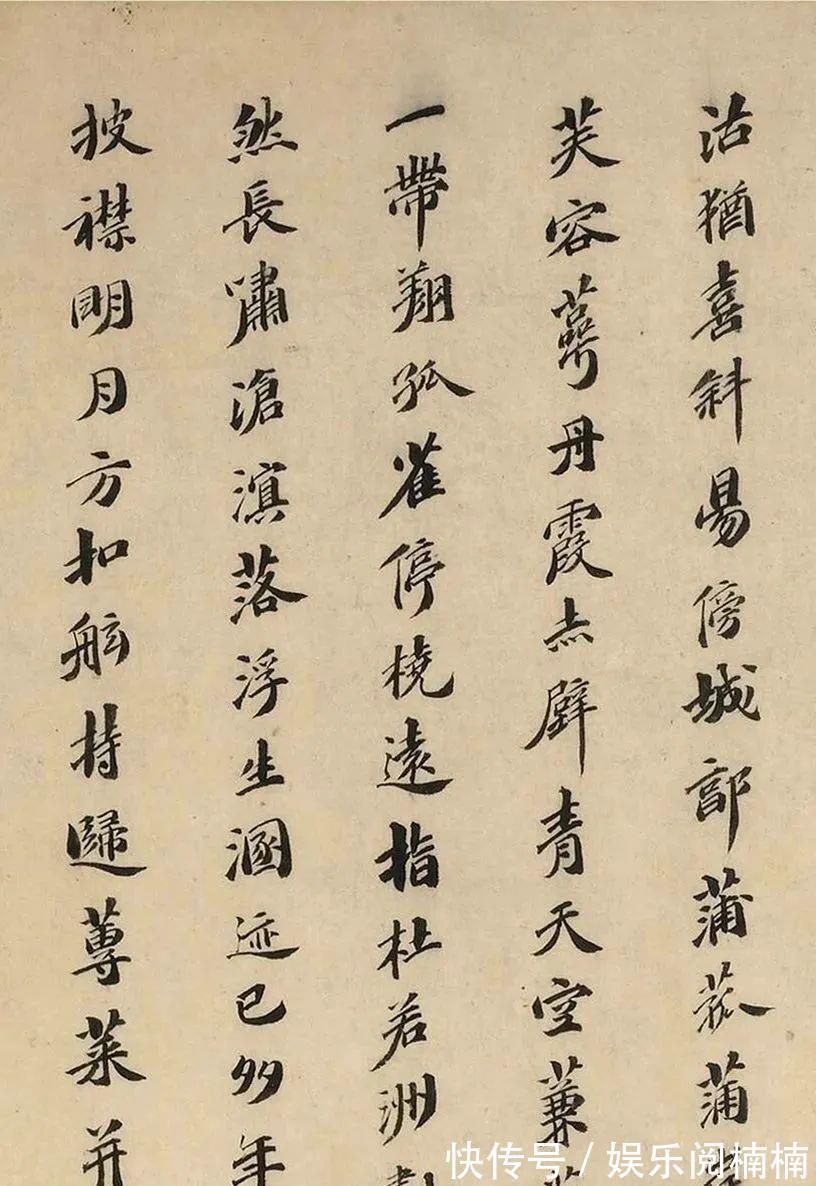 沽猶喜斜昜傍城郭蒲菰蒲
芙容萼丹霞赤壁青天空蒹
一帶翔孤雀停橈遠指杜若洲
然長嘯滄溟落浮生溷迹已多年
披襟明月方扣舷持歸蓴菜并
快传号/娱乐阅楠楠